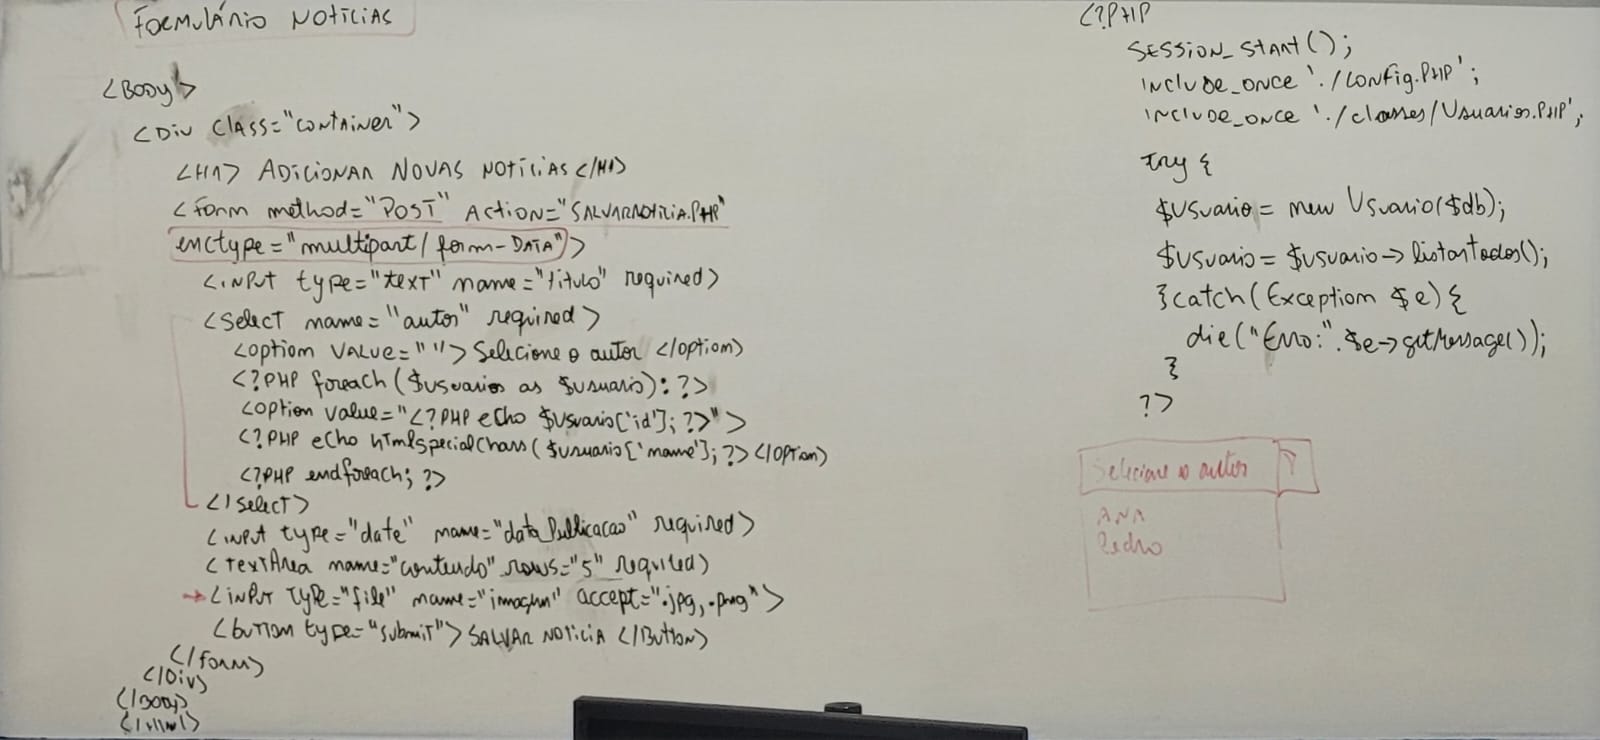 FORMULÁRIO NOTÍCIAS
<BODY>
<Div CLASS="CONTAINER">
<H1> ADICIONAR NOVAS NOTÍCIAS </H1>
<form method="POST" ACTION="SALVARNOTICIA.PHP"
enctype="multipart/form-DATA">
<INPUT type="text" name="titulo" required>
<Select name="autor" required>
<option VALUE=""> Selecione o autor </option>
<?PHP foreach($usuarios as $usuario): ?>
<option value="<?PHP echo $usuario['id']; ?>">
<?PHP echo htmlspecialchars($usuario['name']; ?> </option>
<?PHP endforeach; ?>
</select>
<input type="date" name="data_Publicacao" required>
<textArea name="conteudo" rows="5" required>
→ <input type="file" name="imagem" accept=".jpg,.png">
<button type="submit"> SALVAR NOTICIA </Button>
</form>
</Div>
</Body>
</html>
<?PHP
SESSION_START();
INCLUDE_ONCE './config.PHP';
INCLUDE_ONCE './classes/Usuarios.PHP';
try {
$usuario = new Usuario($db);
$usuario = $usuario->listarTodos();
}catch(Exception $e){
die("Erro:".$e->getMessage());
}
?>
Selecione o autor
ANA
Pedro